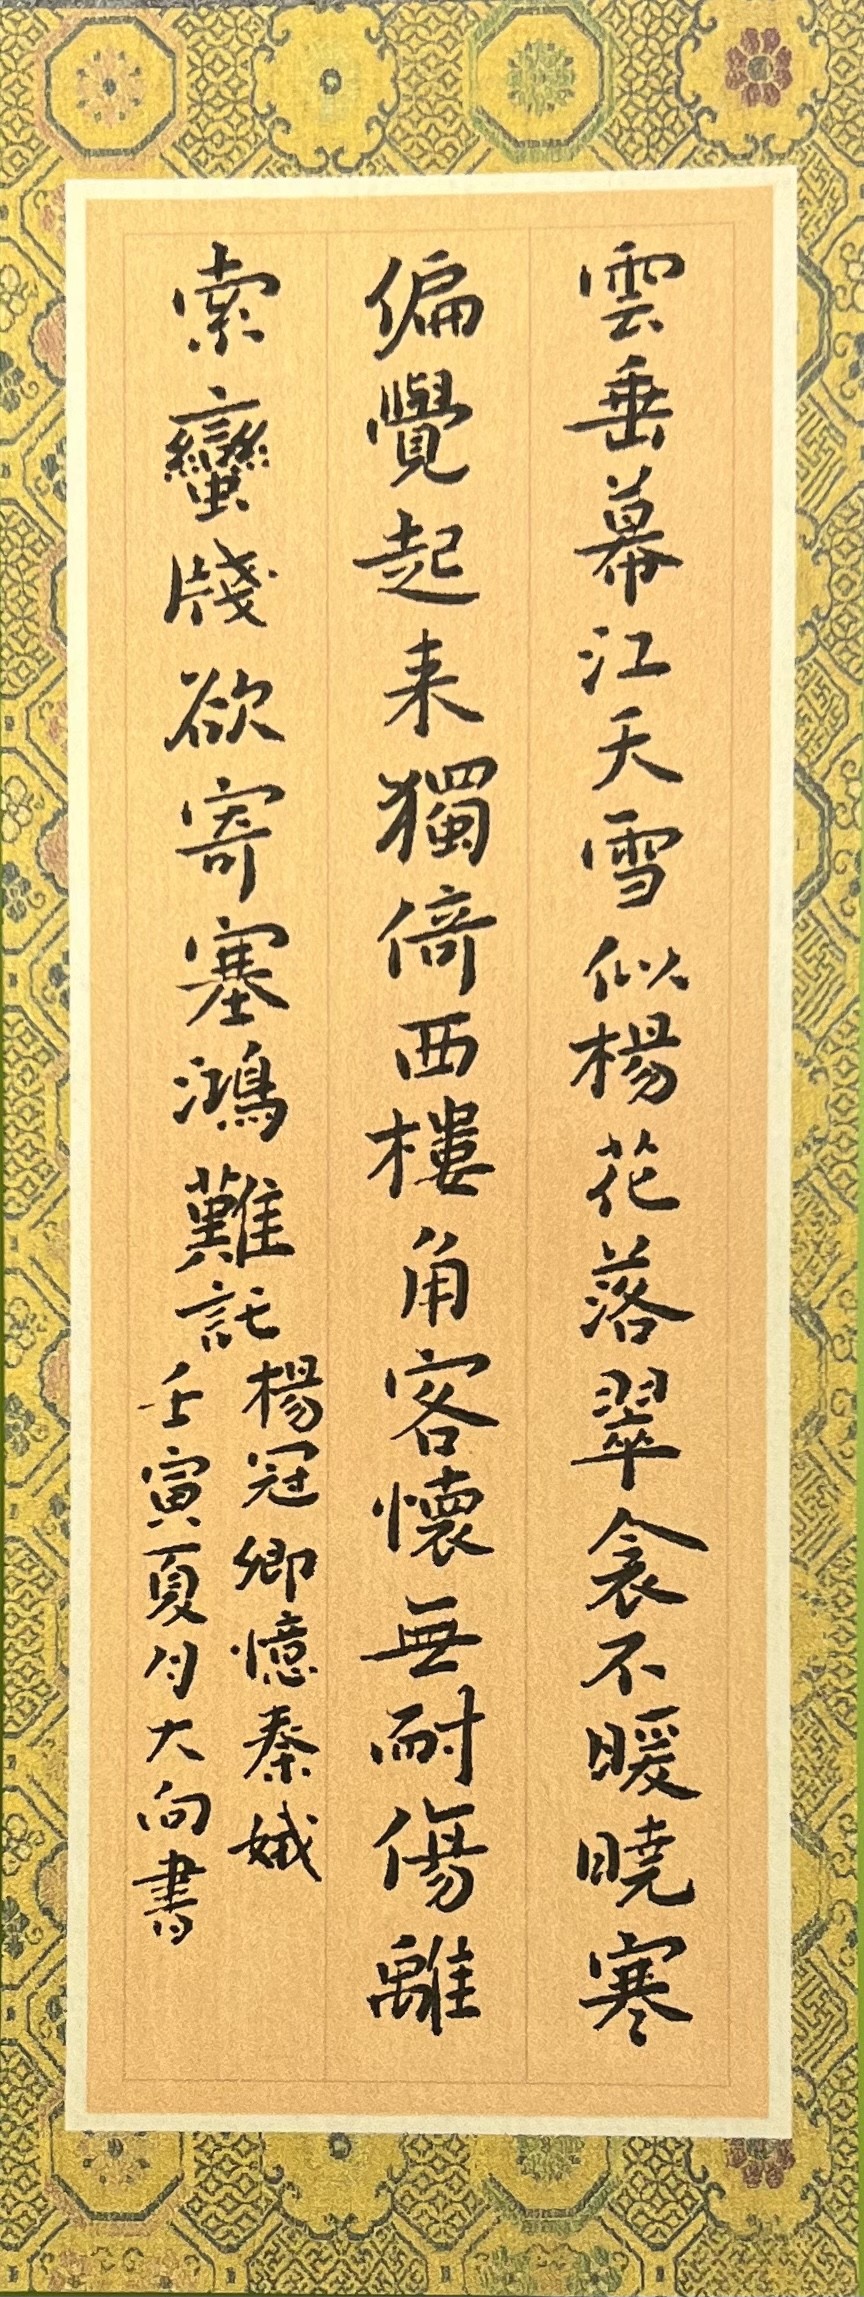 雲垂幕江天雪似楊花落翠衾不暖曉寒
偏覺起来獨倚西樓角客懷無耐傷離
索蠻牋欲寄塞鴻難託
楊冠卿憶秦娥
壬寅夏月大向書